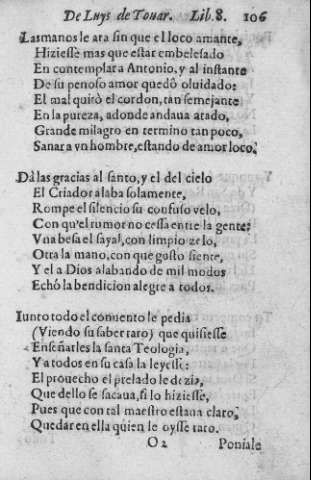 De Luys de Touar. Lib. 8. 106
Las manos le ara sin que el loco amante,
Hiziesse mas que estar embelesado
En contemplar a Antonio, y al instante
De su penoso amor quedò oluidado:
El mal quitò el cordon, tan semejante
En la pureza, adonde andaua atado,
Grande milagro en termino tan poco,
Sanar a vn hombre, estando de amor loco.
Dà las gracias al santo, y el del cielo
El Criador alaba solamente,
Rompe el silencio su confuso velo,
Con qu'el rumor no cessa entre la gente:
Vna besa el sayal, con limpio zelo,
Otra la mano, con que gusto siente,
Y el a Dios alabando de mil modos
Echò la bendicion alegre a todos.
Iunto todo el conuento le pedia
(Viendo su saber raro) que quisiesse
Enseñarles la santa Teologia,
Y a todos en su casa la leyesse:
El prouecho el prelado le dezia,
Que dello se sacaua, si lo hiziesse,
Pues que con tal maestro estaua claro,
Quedar en ella quien le oysse raro.
O 2 Poníale